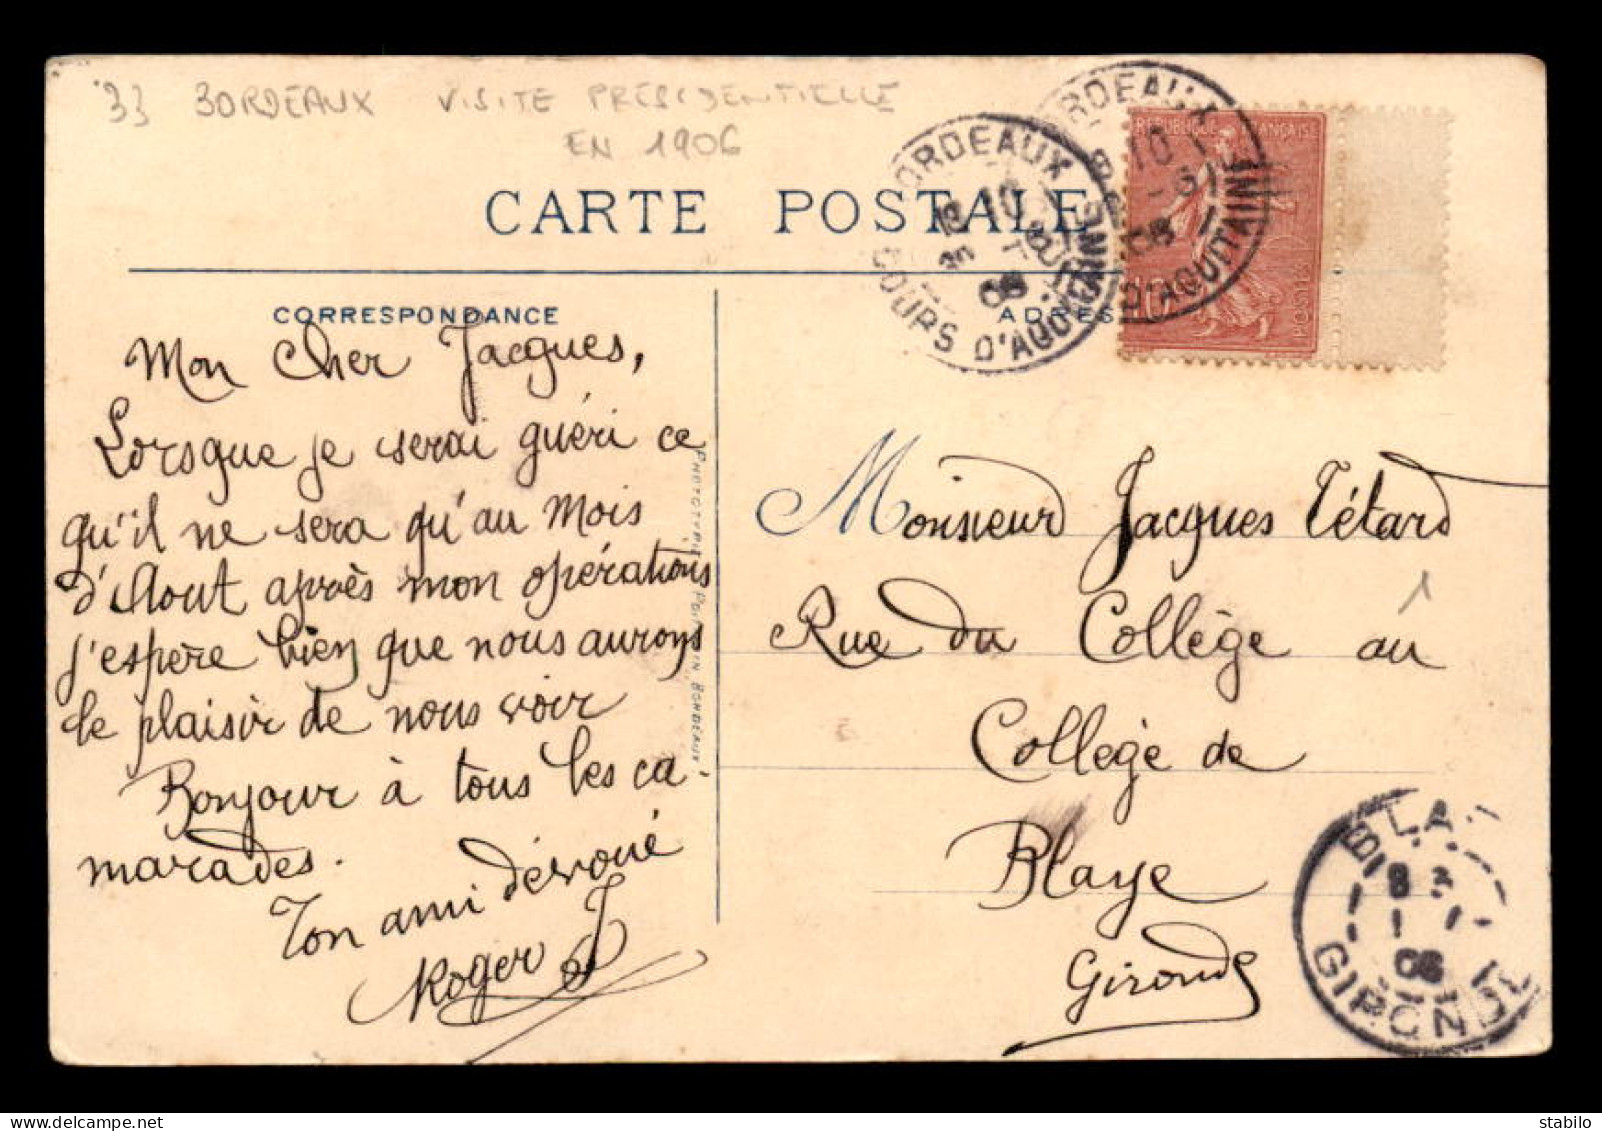 33 BORDEAUX VISITE PRESIDENTIELLE
EN 1906
CARTE POSTALE
CORRESPONDANCE
Mon Cher Jacques,
Lorsque je serai guéri ce
qu'il ne sera qu'au Mois
d'Aout après mon opérations
j'espère bien que nous aurons
le plaisir de nous voir
Bonjour à tous les ca-
marades.
Ton ami dévoué
Roger J
PHOTOTYPIE POITEVIN BORDEAUX
BORDEAUX
10
COURS D'AQUITAINE
BORDEAUX
10
COURS D'AQUITAINE
REPUBLIQUE FRANÇAISE
10
POSTES
ADRES
Monsieur Jacques Tétard
Rue du Collège au
Collège de
Blaye
Gironde
1
BLAYE
GIRONDE
stabilo on www.delcampe.net